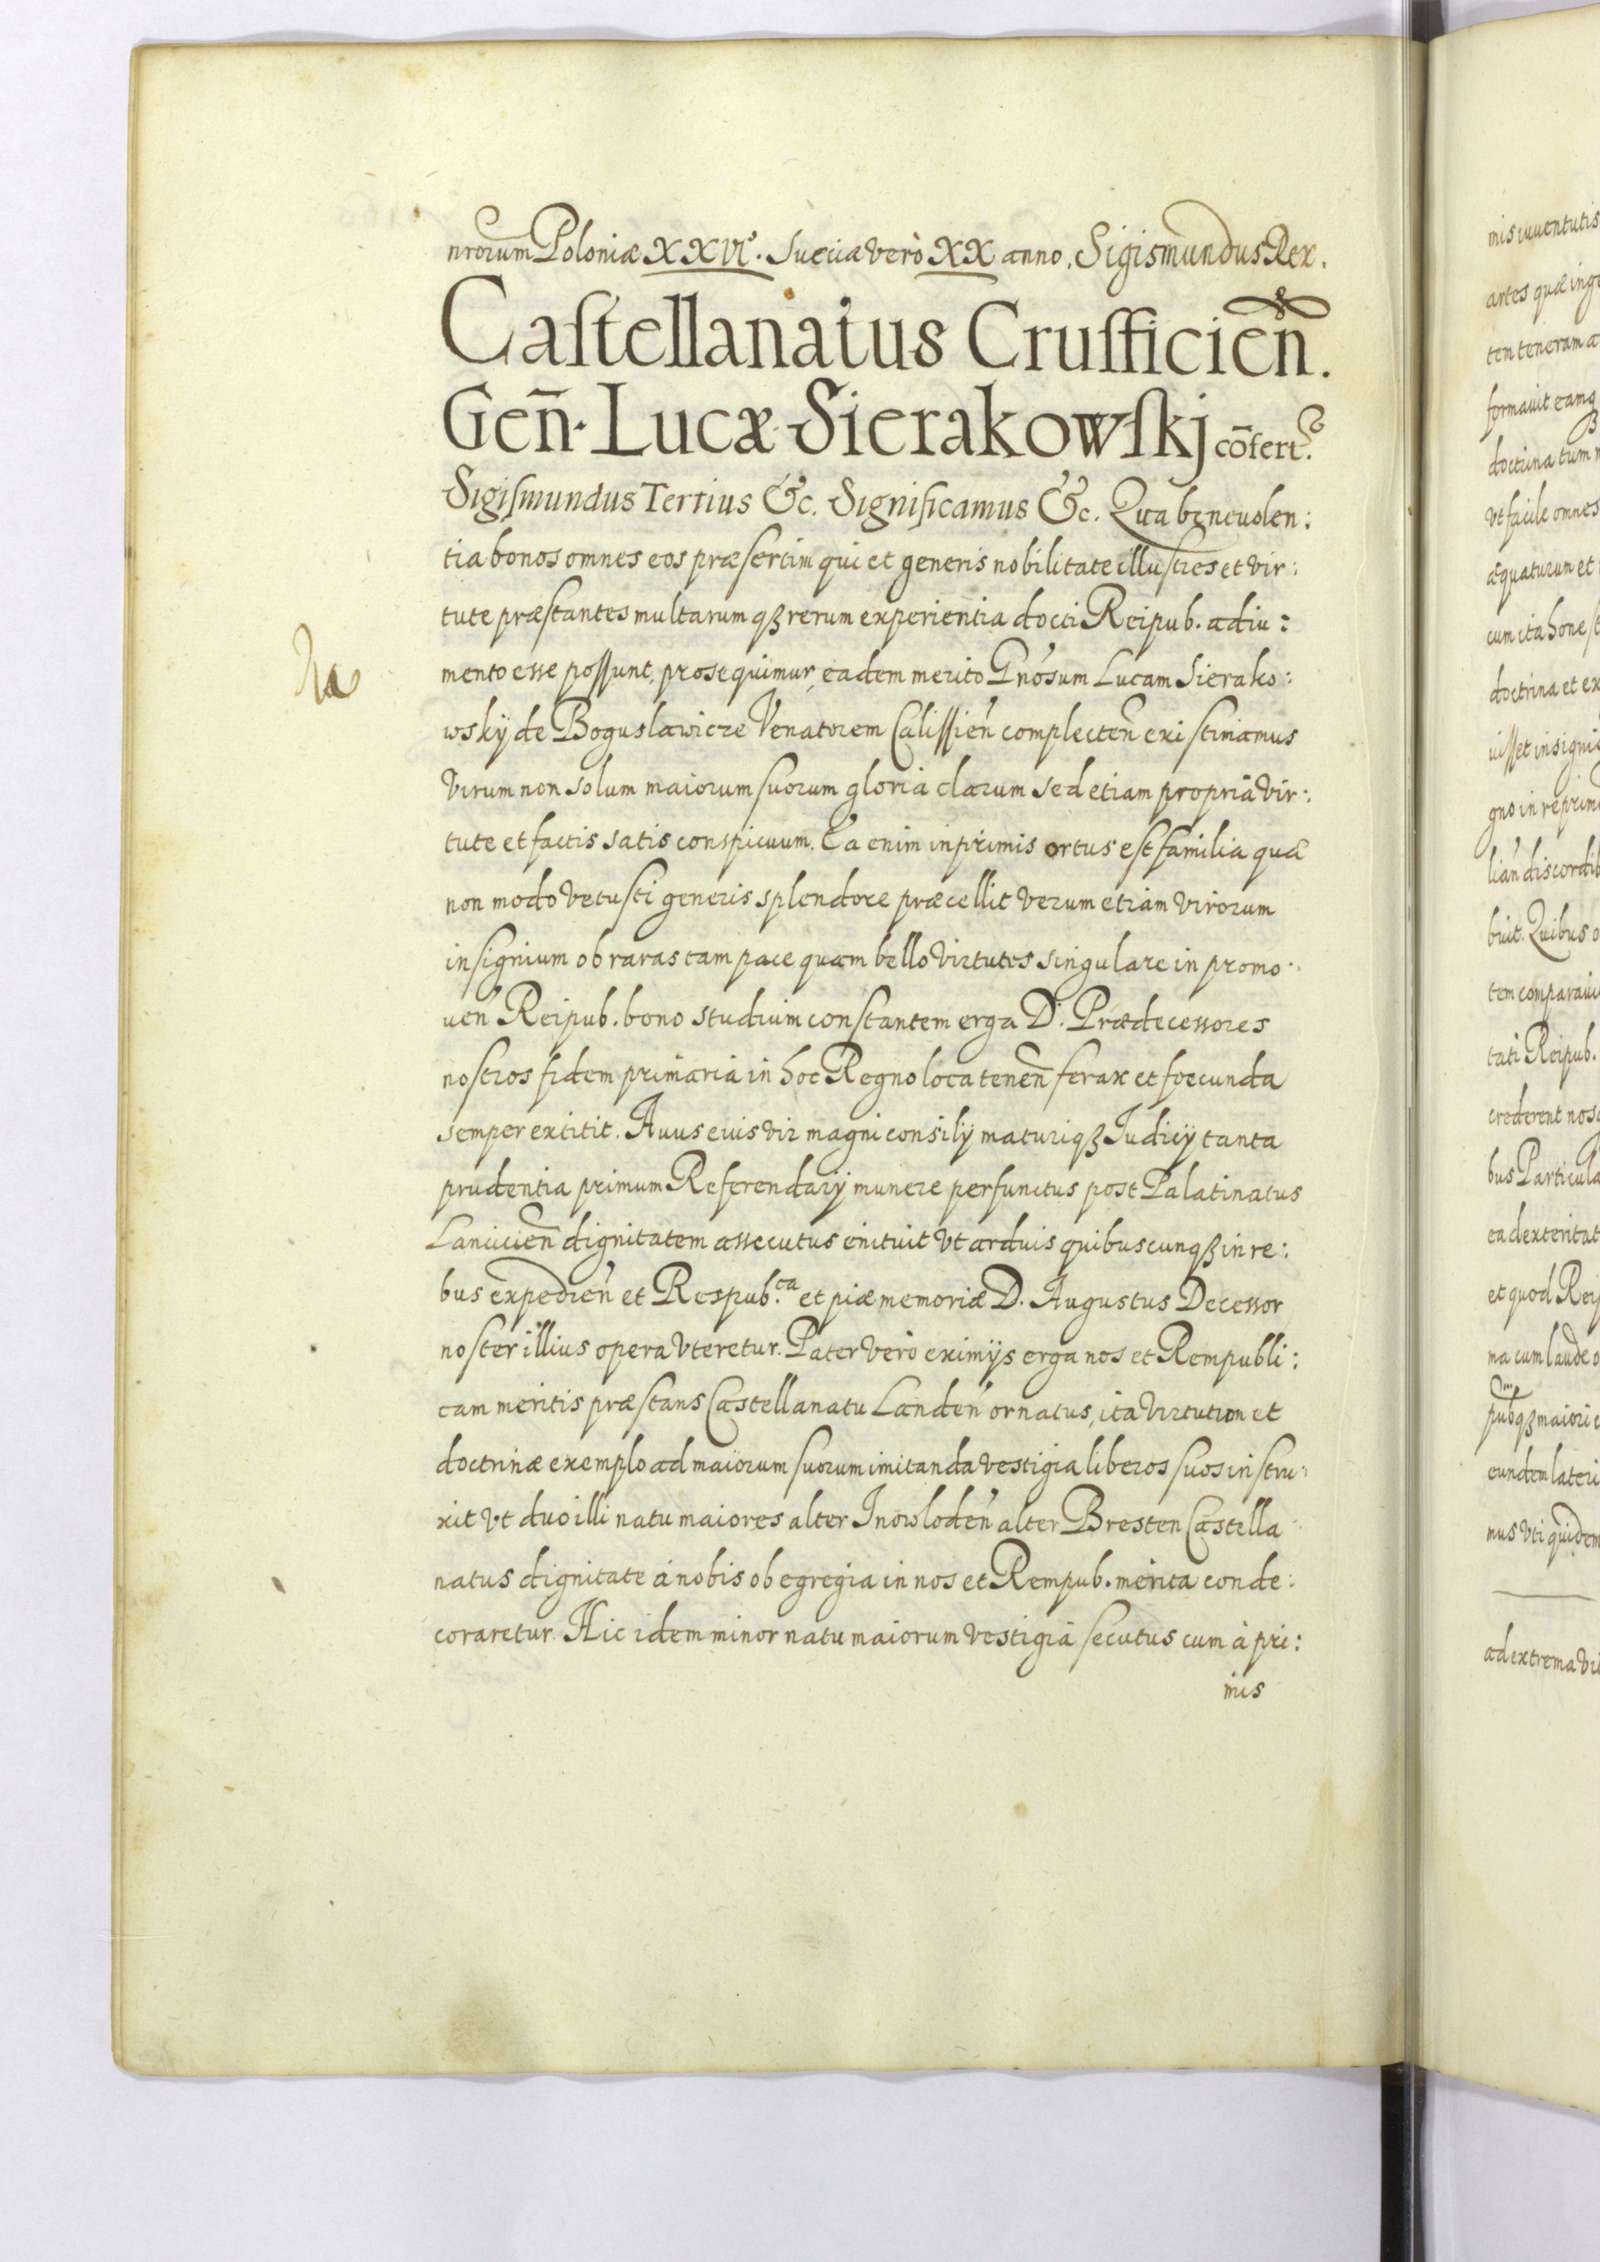 nrorum Poloniæ XXVI°. Sueciæ verò XX anno. Sigismundus Rex.
Castellanatus Crufficien̄.
Gen̄. Lucæ Sierakowskj cōfert.r
Sigismundus Tertius &c. Significamus &c. Qua beneuolen:
tia bonos omnes eos præsertim qui et generis nobilitate illustres et vir:
tute præstantes multarumqꝫ rerum experientia docti Reipub. adiu:
mento esse possunt, prosequimur, eadem merito Gnosum Lucam Sierako:
wskÿ de Boguslawicze Venatorem Calissien̄ complecten̄ existimamus
virum non solum maiorum suorum gloria clarum sed etiam propria vir:
tute et factis satis conspicuum. Ea enim inprimis ortus est familia quæ
non modo vetusti generis splendore præcellit verum etiam virorum
insignium ob raras tam pace quam bello virtutes singulare in promo:
uen̄ Reipub. bono studium constantem erga D. Prædecessores
nostros fidem primaria in hoc Regno loca tenen̄ ferax et foecunda
semper extitit. Auus eius vir magni consilÿ maturiqꝫ Iudicÿ tanta
prudentia primum Referendarÿ munere perfunctus post Palatinatus
Lancicien̄ dignitatem assecutus enituit vt arduis quibuscunqꝫ in re:
bus expedien̄ et Respub.ca et piæ memoriæ D. Augustus Decessor
noster illius opera vteretur. Pater vero eximÿs erga nos et Rempubli:
cam meritis præstans Castellanatu Landen̄ ornatus, ita virtutum et
doctrinæ exemplo ad maiorum suorum imitanda vestigia liberos suos instru:
xit vt duo illi natu maiores alter Inowloden̄ alter Bresten Castella:
natus dignitate à nobis ob egregia in nos et Rempub. merita conde:
coraretur. Hic idem minor natu maiorum vestigia secutus cum à pri:
mis
mis iuuentutis
artes quæ inge
ten teneram a
formauit eamqꝫ
doctrina tum
vt facile omnes
æquaturum et
cum ita hones
doctrina et ex
uisset insigni
gno in reprim
lian̄ discordi
buit. Quibus
tem comparaui
tati Reipub.
crederent nos
bus Particula
ea dexteritat
et quod Reip
ma cum laude
pubqꝫ maiori
eundem lateri
mus vti quidem
ad extrema vi